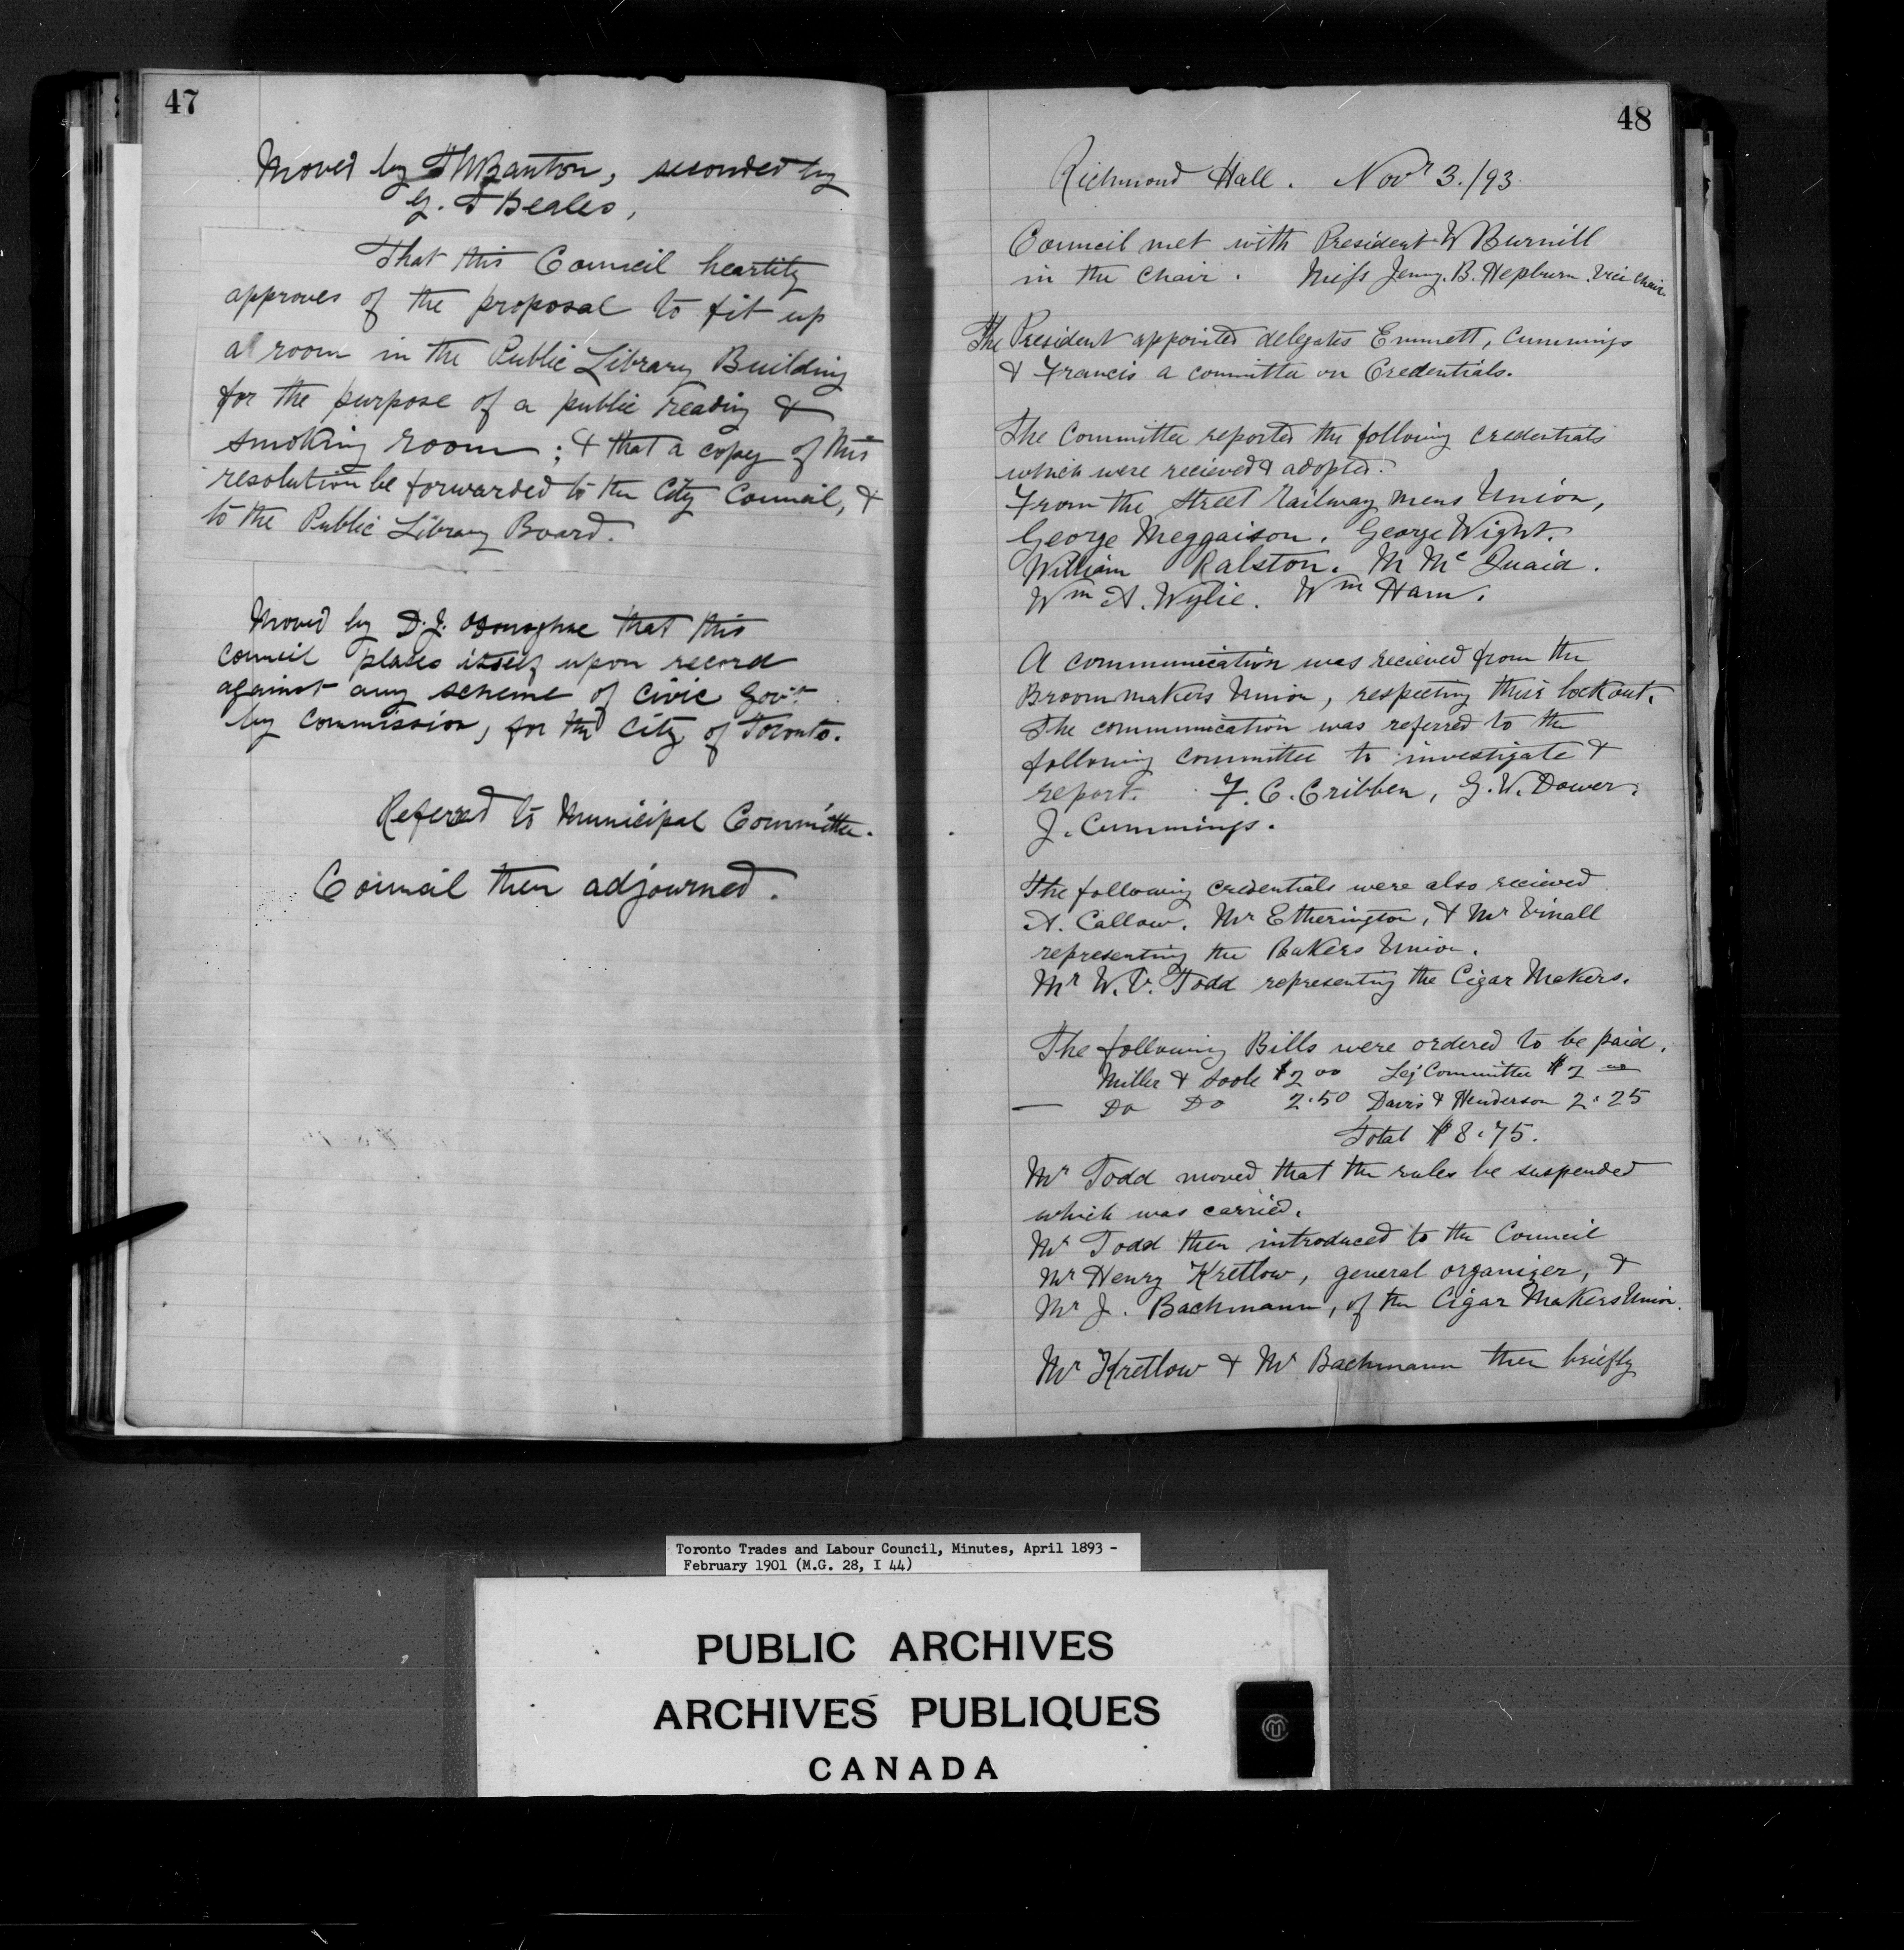 47
Moved by T W Banton, seconded by
G. T Beales,
That this Council heartily
approves of the proposal to fit up
a room in the Public Library Building
for the purpose of a public reading &
smoking room; & that a copy of this
resolution be forwarded to the City Council, &
to the Public Library Board.
Moved by D. J. O'Donoghue that this
council places itself upon record
against any scheme of civic Gov't
by Commission, for the City of Toronto.
Referred to Municipal Committee.
Council then adjourned.
48
Richmond Hall. Novr 3./93
Council met with President W Burnill
in the chair. Miss Jenny. B. Hepburn. Vice chair.
The President appointed delegates Emmett, Cummings
& Francis a committee on Credentials.
The Committee reported the following credentials
which were recieved & adopted.
From the Street Railway mens Union,
George Meggaison. George Wight.
William Ralston. M McQuaid.
Wm A. Wylie. Wm Ham.
A communication was recieved from the
Broommakers Union, respecting their lockout.
The communication was referred to the
following committee to investigate &
report. F. C. Cribben, G. W. Dower,
J. Cummings.
The following credentials were also recieved
A. Callow. Mr Etherington, & Mr Vinall
representing the Bakers Union.
Mr W. V. Todd representing the Cigar Makers.
The following Bills were ordered to be paid.
Miller & Soole $2 00 Leg Committee $2 00
— Do Do 2.50 Davis & Henderson 2.25
Total $8.75.
Mr Todd moved that the rules be suspended
which was carried.
Mr Todd then introduced to the Council
Mr Henry Kretlow, general organizer, &
Mr J. Bachmann, of the Cigar Makers Union.
Mr Kretlow & Mr Bachmann then briefly
Toronto Trades and Labour Council, Minutes, April 1893 -
February 1901 (M.G. 28, I 44)
PUBLIC ARCHIVES
ARCHIVES PUBLIQUES
CANADA